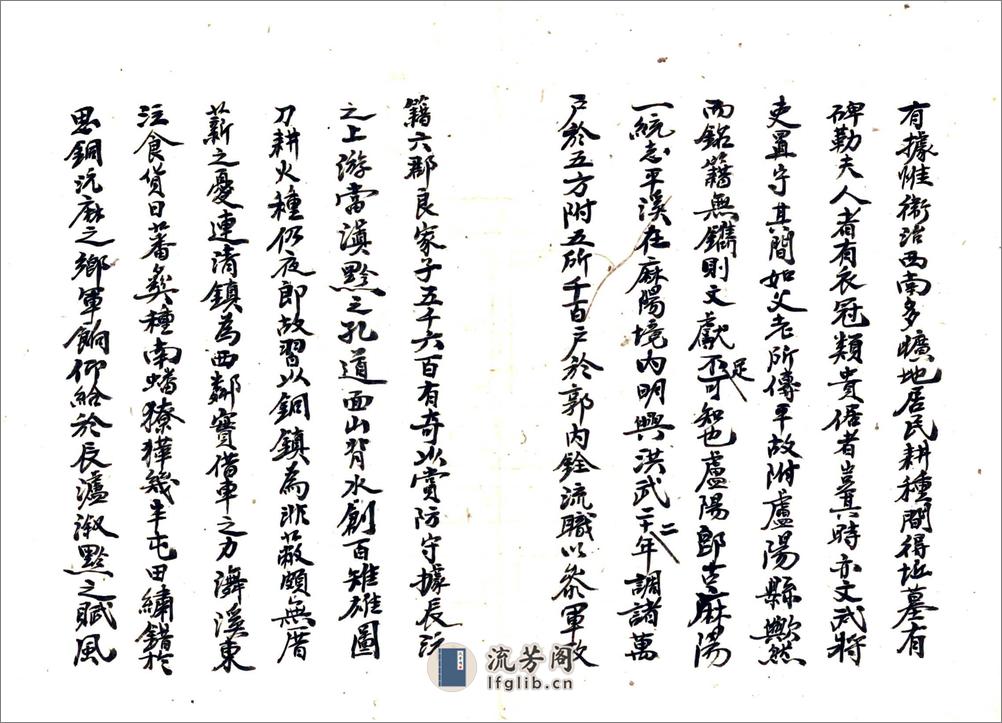 有據惟衛治西南多曠地居民耕種間得墟墓有
碑勒夫人者有衣冠類貴倨者豈其時亦文武將
吏置守其間如父老所傳乎故附盧陽縣歟然
而銘籍無鐫則文獻不足可知也盧陽郎莫麻陽
一統志平溪在麻陽境內明興洪武二十二年調諸萬
戶於五方附五所千百戶於郭內銓流職以叅軍政
籍六郡良家子五千六百有奇以賞防守據長沅
之上游當滇黔之孔道面山背水創百雉雄圖
刀耕火種仍夜郎故習以銅鎮為非蔽頗無厝
薪之憂連清鎮為西鄰實借車之力濟溪東
注食貨日蕃彝種南蟠獠獞幾半屯田繡錯於
思銅沅麻之鄉軍餉仰給於長瀘溆黔之賦風
流芳阁
lfglib.cn